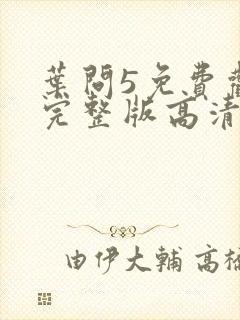 葉問5免費
完整版高清
由伊大輔 高